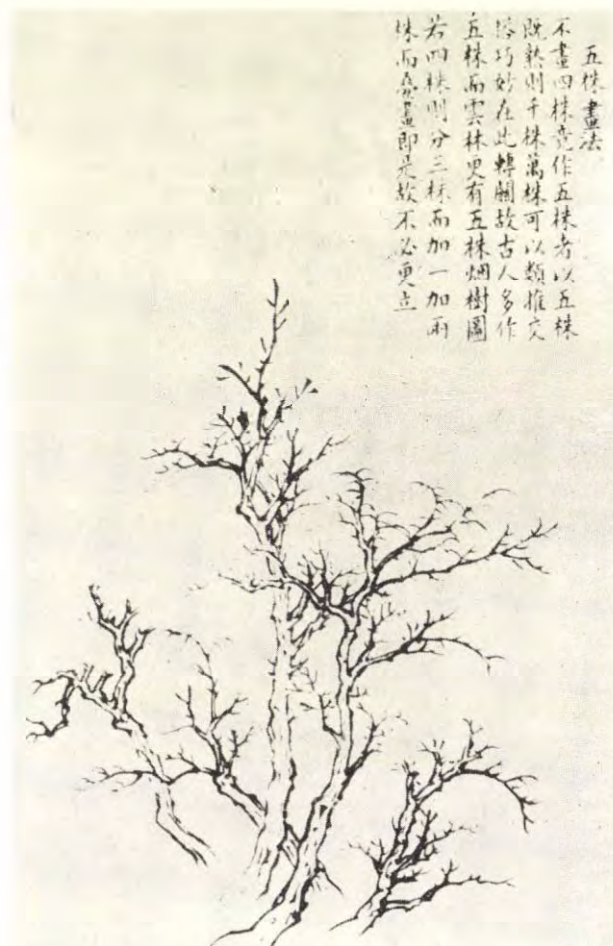 五株畫法
不畫四株竟作五株者以五株
既熟則千株萬株可以類推交
搭巧妙在此轉關故古人多作
五株而雲林更有五株烟樹圖
若四株則分三株而加一加兩
株而疊畫即是故不必更立